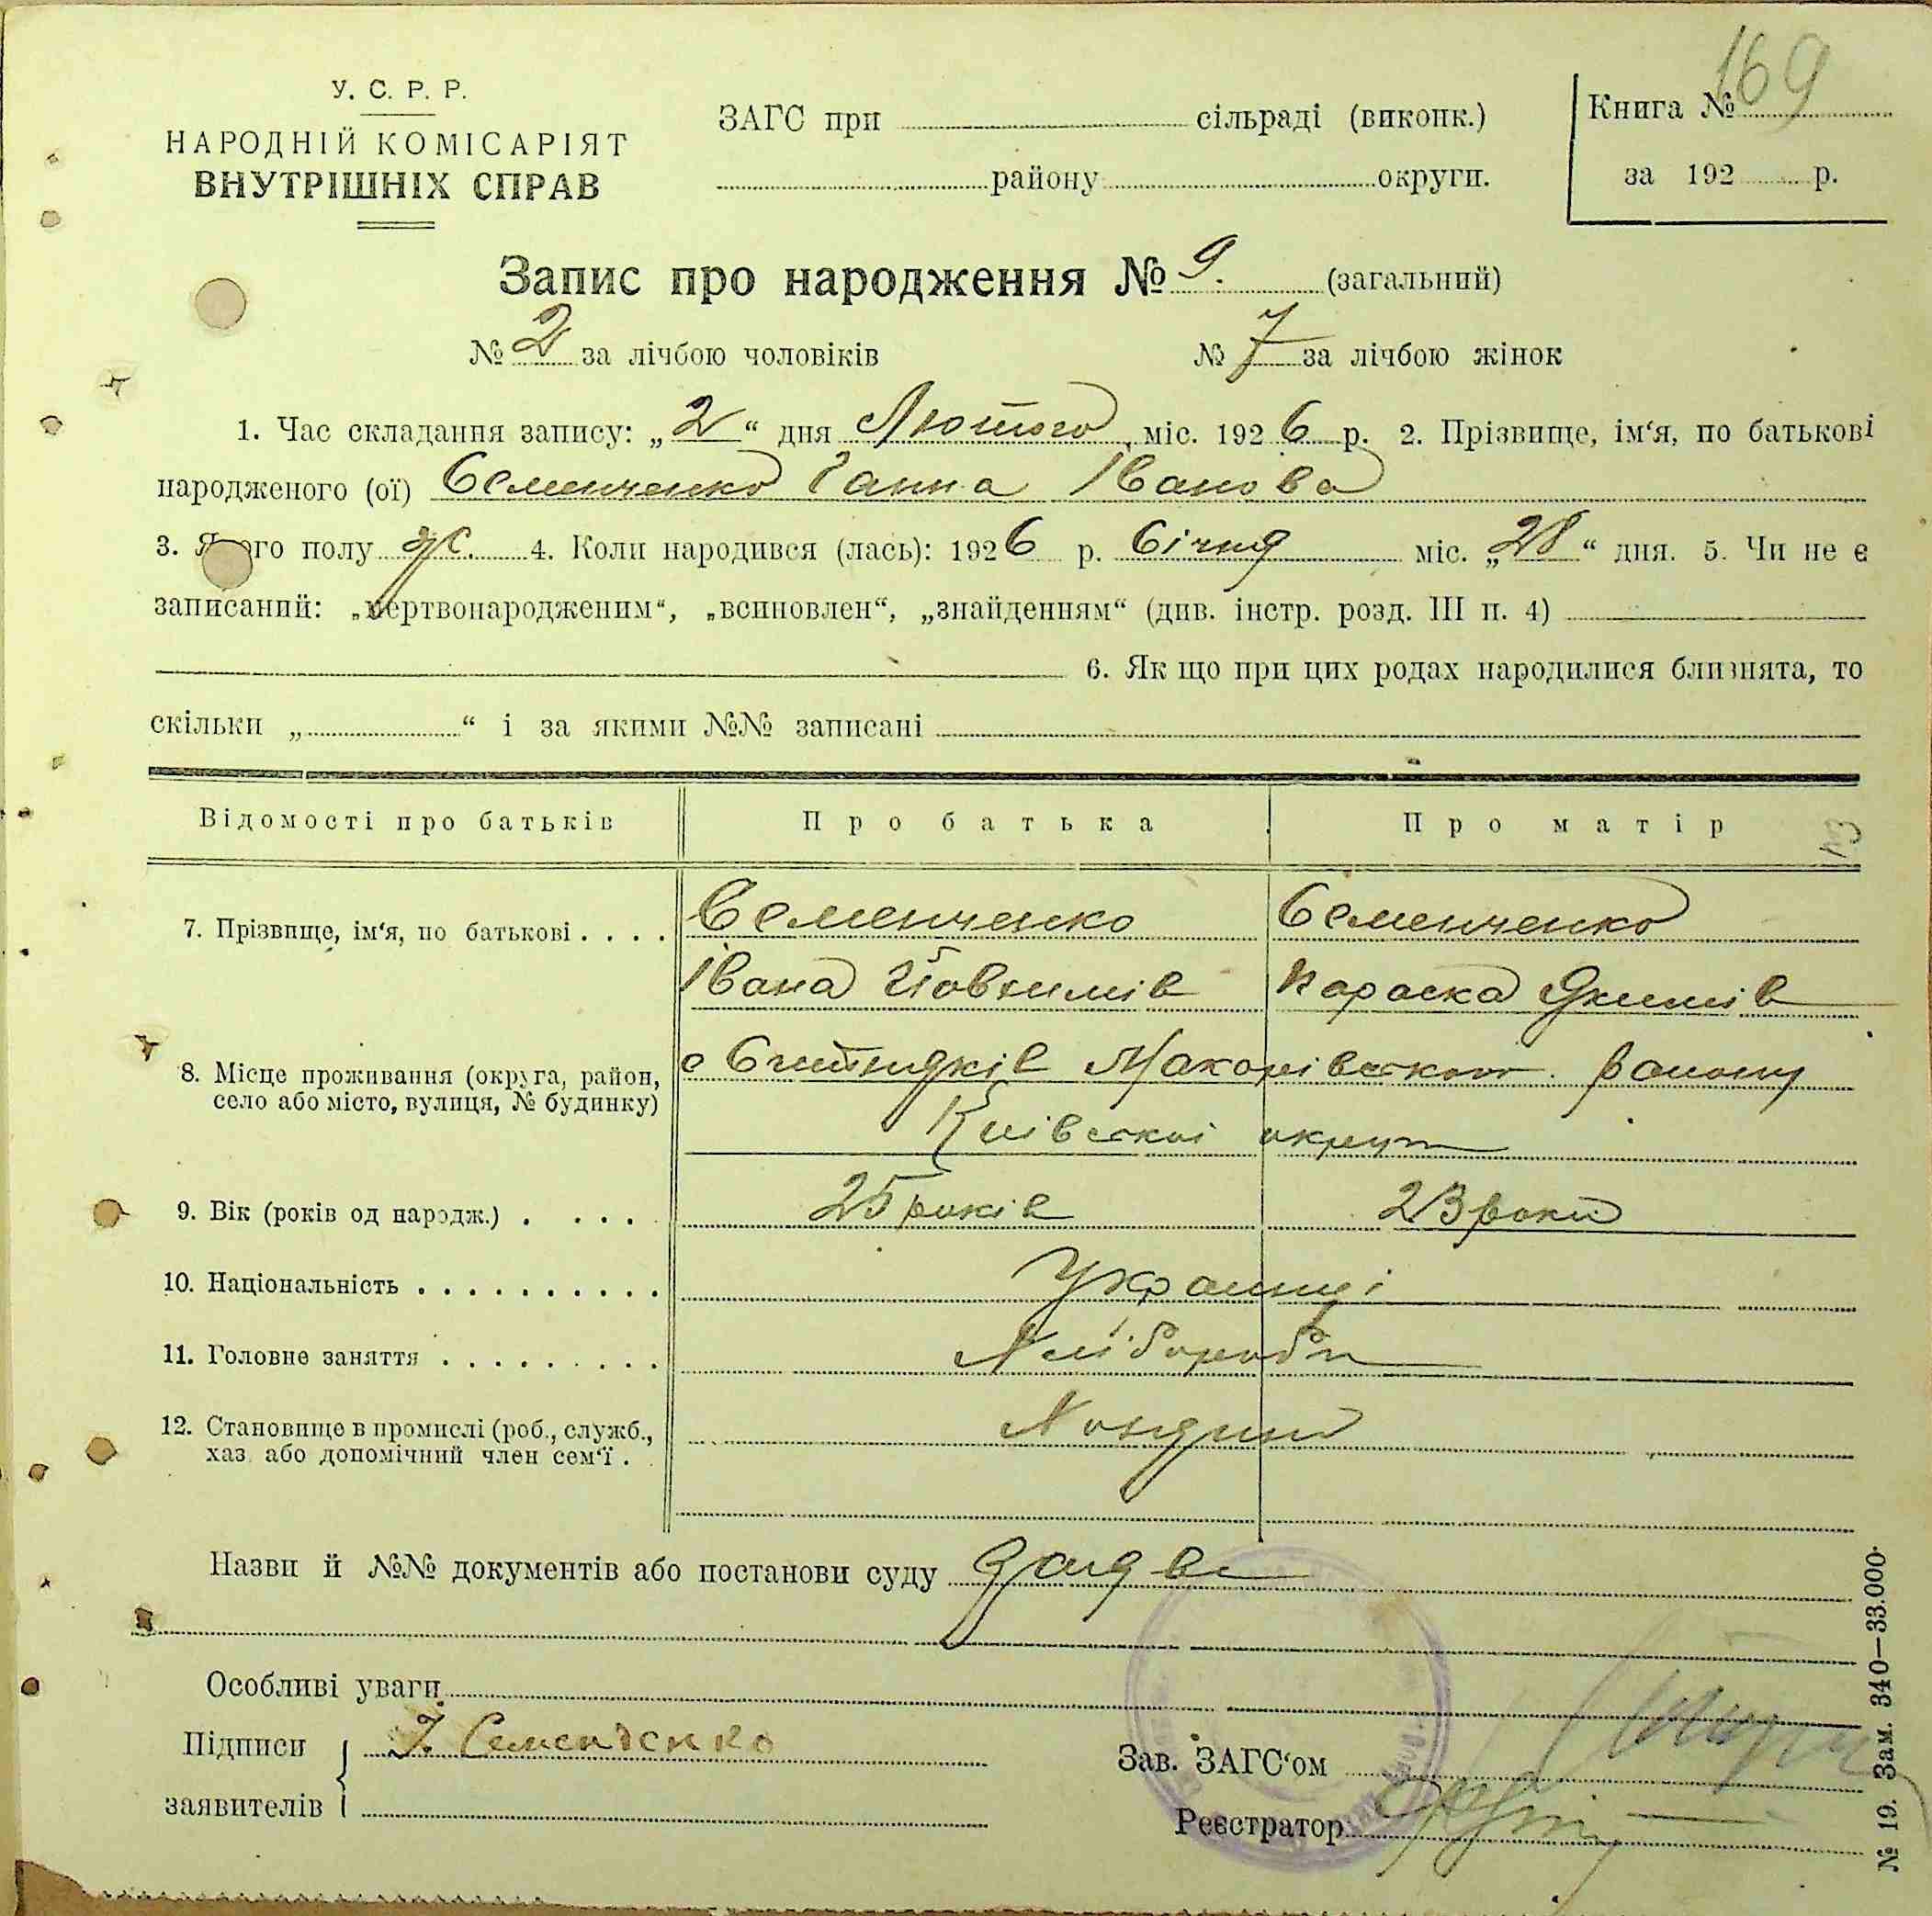 169
У. С. Р. Р.
НАРОДНІЙ КОМІСАРІЯТ
ВНУТРІШНІХ СПРАВ
ЗАГС при сільраді (виконк.)
району округи.
Книга №
за 192 р.
Запис про народження № 9. (загальний)
№ 2 за лічбою чоловіків № 7 за лічбою жінок
1. Час складання запису: „2“ дня Лютого міс. 1926 р. 2. Прізвище, ім‘я, по батькові
народженого (ої) Семенченко Ганна Іванова
3. Якого полу ж. 4. Коли народився (лась): 1926 р. Січня міс. „28“ дня. 5. Чи не є
записаний: „мертвонародженим“, „всиновлен“, „знайденням“ (див. інстр. розд. III п. 4)
6. Як що при цих родах народилися близнята, то
скільки „ “ і за якими №№ записані
Відомості про батьків Про батька Про матір
7. Прізвище, ім‘я, по батькові . . . . Семенченко Семенченко
Івана Йовхимів Параска Якимів
8. Місце проживання (округа, район, с Ситняків Макарівського району
село або місто, вулиця, № будинку) Київської округи
9. Вік (років од народж.) . . . . 25 років 23 роки
10. Національність . . . . . . . . . . Українці
11. Головне заняття . . . . . . . . . Хліборобы
12. Становище в промислі (роб., служб.,
хаз. або допомічний член сем‘ї .
Назви й №№ документів або постанови суду заява
Особливі уваги
Підписи І. Семенченко
заявителів
Зав. ЗАГС‘ом
Реєстратор
№ 19. Зам. 340—33.000.